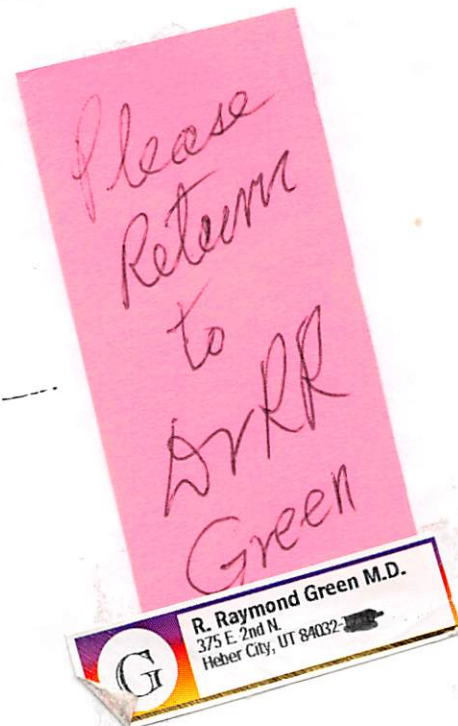 Please
Return
to
Dr RR
Green
G
R. Raymond Green M.D.
375 E. 2nd N.
Heber City, UT 84032-